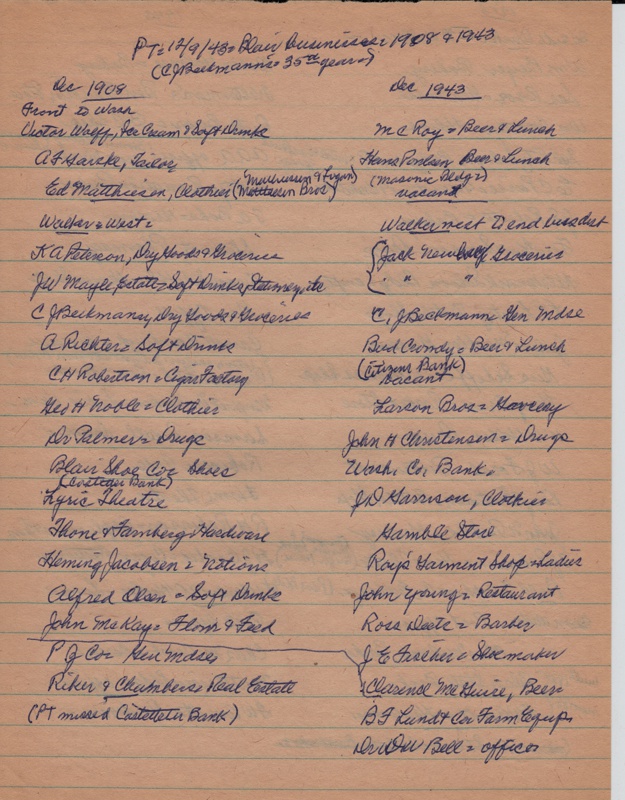 PT= 12/9/43= Blair businesses 1908 & 1943
(CJ Beckmann's 35th year)
Dec 1908
Dec 1943
Front to Wash
Victor Wolff, Ice Cream & Soft Drinks
McRoy = Beer & Lunch
A F Garske, Tailor
Hans Paulsen Beer & Lunch
Ed Matthiesen, Clothier (Matthiesen Bros)
(Masonic Bldg=) vacant
Walker = West =
Walker west to end buss dist
K A Peterson, Dry Goods & Groceries
Jack Newberry Groceries
J W Mayle Estate = Soft Drinks,
" "
C J Beckmann, Dry Goods & Groceries
C, J Beckmann Gen Mdse
A Richter = Soft Drinks
Bud Crowdy = Beer & Lunch
C H Robertson = Cigar Factory
(Citizens Bank) vacant
Geo H Noble = Clothier
Larson Bros = Grocery
Dr Palmer = Drugs
John H Christensen = Drugs
Blair Shoe Co = Shoes
Wash. Co Bank.
(Castetter Bank)
Lyric Theatre
J D Garrison, Clothier
Thone & Farnberg Hardware
Gamble Store
Heming Jacobsen = Notions
Roy's Garment Shop = Ladies
Alfred Olsen = Soft Drinks
John Young = Restaurant
John McKay = Flour & Feed
Ross Deetz = Barber
P G Co= Gen Mdse
J E Fischer = Shoemaker
Riker & Chambers = Real Estate
Clarence McGuire, Beer
(PT missed Castetter Bank)
B F Lundt & Co Farm Equip
Dr DW Bell = offices